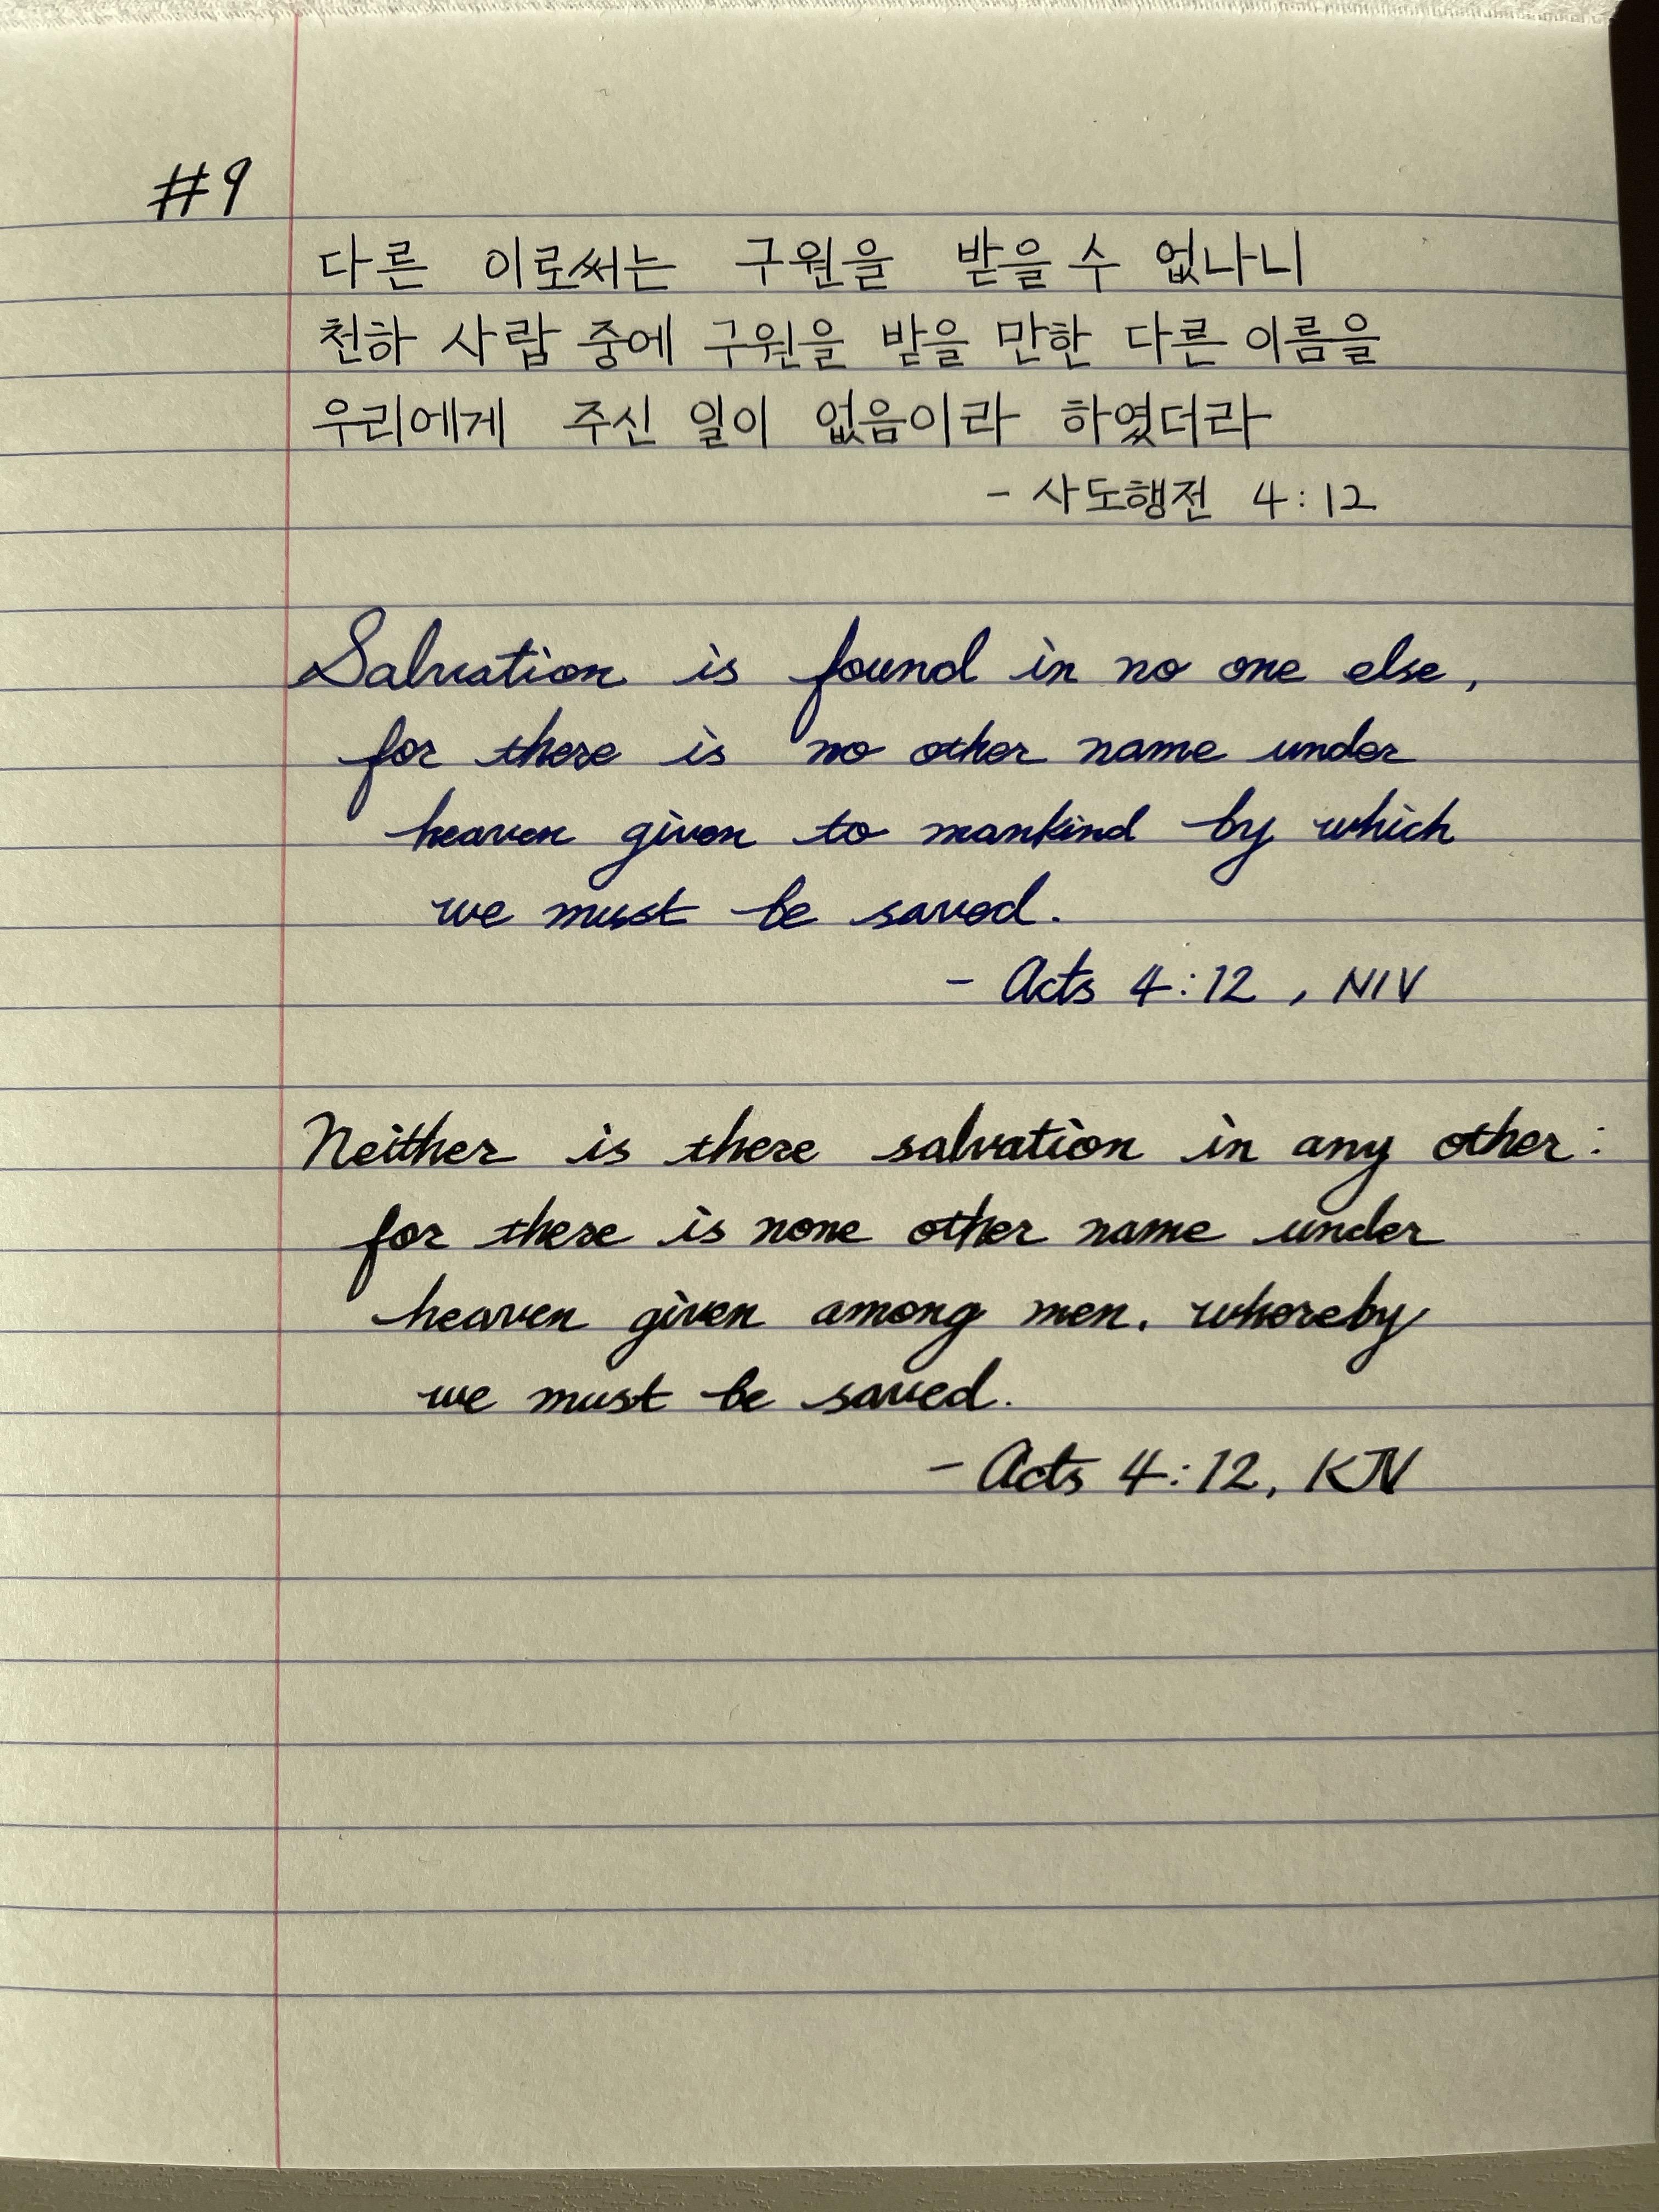 #9
다른 이로써는 구원을 받을 수 없나니
천하 사람 중에 구원을 받을 만한 다른 이름을
우리에게 주신 일이 없음이라 하였더라
- 사도행전 4:12
Salvation is found in no one else,
for there is no other name under
heaven given to mankind by which
we must be saved.
- Acts 4:12, NIV
Neither is there salvation in any other:
for there is none other name under
heaven given among men, whereby
we must be saved.
- Acts 4:12, KJV